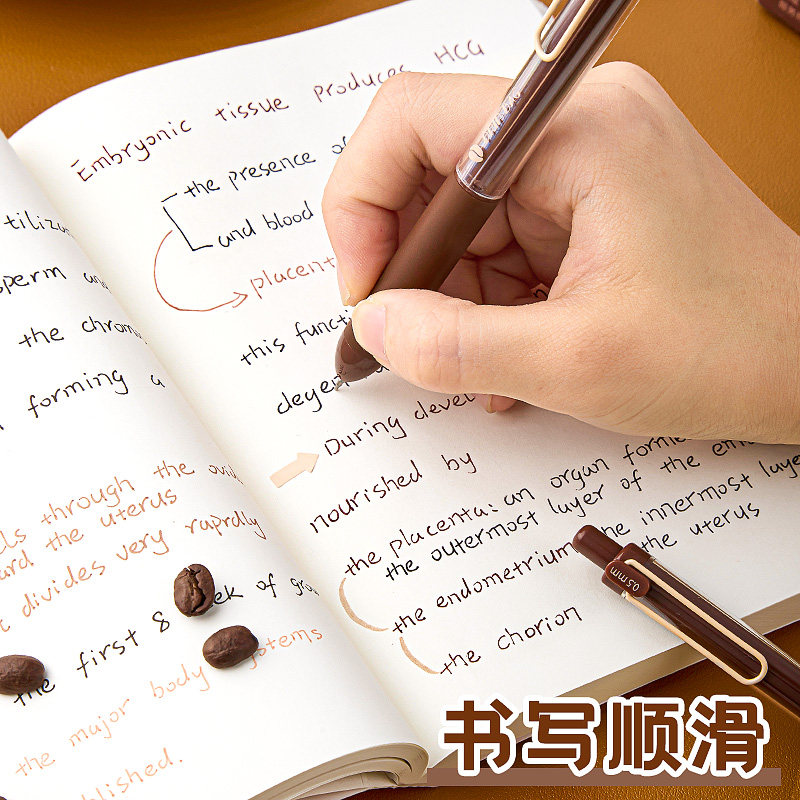 tiliza
sperm and
the chrom
forming a
through the
ard the uterus
divides very raprdly
the first 8 ek of
the major body
blished.
Embryonic tissue produces HCG
the presence of
and blood
placent
this funct
degen
During devel
nourished by
the placenta: an organ forme
the outermost layer of the
the endometrium, the innermost laye
the uterus
the chorion
0.5mm
书写顺滑